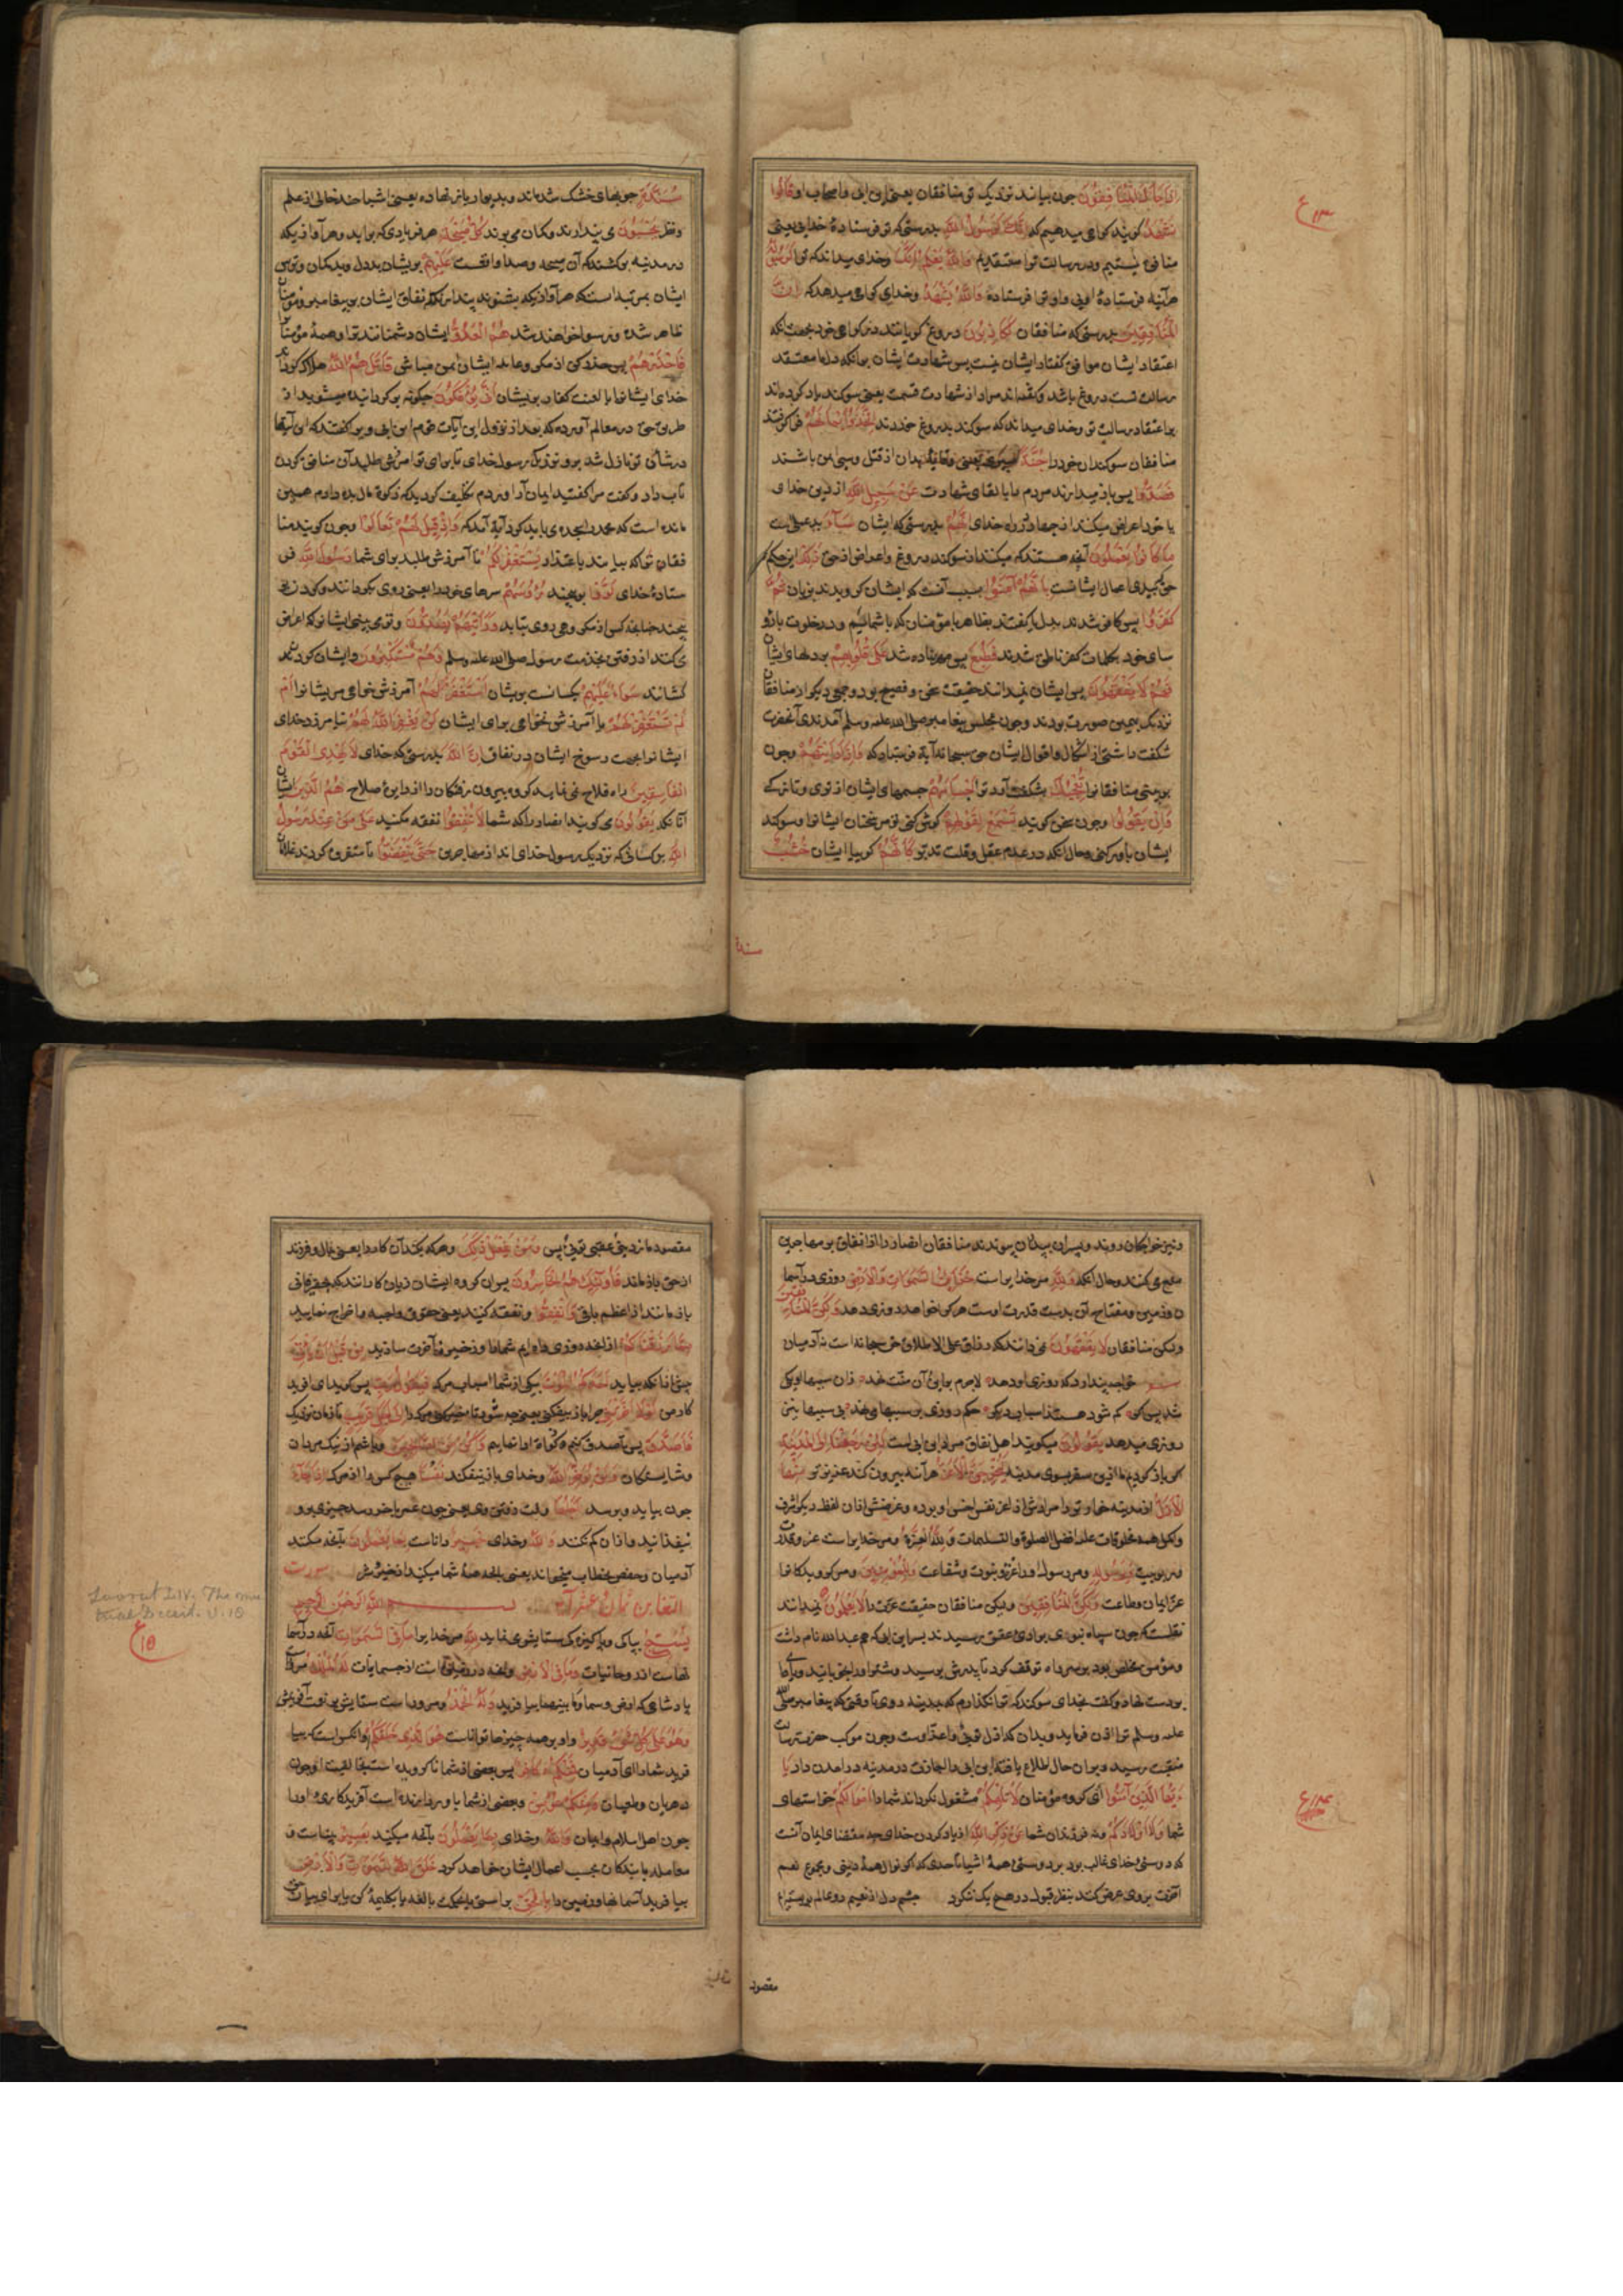 اذا جاءک المنافقون چون بیایند نزدیک تو منافقان یعنی ابن ابی و اصحاب او قالوا
نشهد کویند کواهی میدهیم که انک لرسول الله بدرستی که تو فرستادهٔ خدایی یعنی
منافق نیستیم و برسالت تو معتقدیم والله یعلم انک و خدای میداند که تو لرسوله
هرآینه فرستادهٔ اویی و او ترا فرستاده والله یشهد و خدای کواهی میدهد که ان
المنافقین بدرستی که منافقان لکاذبون دروغ کویانند در کواهی خود بجهت آنکه
اعتقاد ایشان موافق کفتار ایشان نیست پس شهادت ایشان برآنکه دلها معتقد
رسالت تست دروغ باشد و کفته‌اند مراد از شهادت قسمت یعنی سوکند یاد کرده‌اند
بر اعتقاد رسالت تو و خدای میداند که سوکند بدروغ خوردند اتخذوا ایمانهم فرا کرفتند
منافقان سوکندان خود را جنة سپری یعنی وقایهٔ بدان از قتل و سبی امن باشند
فصدوا پس باز میدارند مردم را بالقای شهادت عن سبیل الله از دین خدای
یا خود اعراض میکنند از جهاد در راه خدای انهم بدرستی که ایشان ساء بد عملی است
ما کانوا یعملون آنچه هستند که میکنند از سوکند دروغ و اعراض از حق ذلک این حکم
حق به بدی اعمال ایشانست بانهم آمنوا بسبب آنست که ایشان کرویدند بزبان ثم
کفروا پس کافر شدند بدل یا کفتند بظاهر با مؤمنان که با شمائیم و در خلوت با رؤ
سای خود بکلمات کفر ناطق شدند فطبع پس مهر نهاده شد علی قلوبهم بر دلهای ایشان
فهم لا یفقهون پس ایشان نمیدانند حقیقت
نزدیک بهمین صورت بودند و چون بمجلس پیغامبر صلی الله علیه وسلم آمدندی آنحضرت
شکفت داشتی از اشکال و اقوال ایشان حق سبحانه آیه فرستاد که واذا رأیتهم و چون
بینی منافقانرا تعجبک بشکفت آورد ترا اجسامهم جسمهای ایشان از نوی و تازکی
وان یقولوا و چون سخن کویند تسمع لقولهم کوش کنی مر سخنان ایشانرا و سوکند
ایشان باور کنی و حال آنکه در عدم عقل و قلت تدبر کانهم کوییا ایشان خشب
مسندة
مسندة چوبهای خشک شده‌اند و بدیوار باز نهاده یعنی اشباحند خالی از علم
و نظر یحسبون می پندارند و کمان می برند کل صیحة هر فریادی که برآید و هر آوازیکه
در مدینه برکشند که آن صیحه و صدا واقعست علیهم بر ایشان بددل و بدکمان و ترس
ایشان بمرتبه‌ایست که هر آوازیکه بشنوند پندارند که نفاق ایشان بر پیغامبر و مؤمنان
ظاهر شده و رسوا خواهند شد هم العدو ایشان دشمنانند ترا و همهٔ مؤمنان را
فاحذرهم پس حذر کن از مکر و ایشان ایمن مباش قاتلهم الله هلاک کرداند
خدای ایشانرا یا لعنت کناد بر ایشان انی یؤفکون چکونه برکردانیده میشوید از
طریق حق در معالم آورده که بعد از نزول این آیات قوم ابن ابی ویرا کفتند که این آیتها
در شان تو نازل شد برو نزدیک رسول خدای تا برای تو آمرزش طلبد آن منافق کردن
تاب داد و کفت مرا کفتید ایمان آر آوردم تکلیف کردید که زکوة مال بده دادم همین
مانده است که محمد را سجده می باید کرد آیه آمد که واذا قیل لهم تعالوا و چون کویند منا
فقانرا که بیایید باعتذار یستغفر لکم تا آمرزش طلبد برای شما رسول الله فر
ستادهٔ خدای لووا بپیچند رؤسهم سرهای خود را یعنی روی بکردانند و کردن
پیچند چنانچه کسی از مکروهی روی بتابد ورایتهم یصدون و تو می بینی ایشانرا که اعراض
می کنند از رفتن بخدمت رسول صلی الله علیه وسلم وهم مستکبرون و ایشان کردن
کشانند سواء علیهم یکسانست بر ایشان استغفرت لهم آمرزش خواهی مر ایشانرا ام
لم تستغفر لهم یا آمرزش نخواهی برای ایشان لن یغفر الله لهم نیامرزد خدای
ایشانرا بجهت رسوخ ایشان در نفاق ان الله بدرستی که خدای لا یهدی القوم
الفاسقین راه فلاح نمی نماید کروه بیرون رفتکان را از دایرهٔ صلاح هم الذین ایشان
آنانکه یقولون می کویند انصار را که شما لا تنفقوا نفقه مکنید علی من عند رسول
الله بر کسانی که نزدیک رسول خدای اند از مهاجرین حتی ینفضوا تا متفرق کردند غلامان
و نیز خواجکان روند و پسران به پدران پیوندند منافقان انصار را از انفاق بر مهاجرین
منع می کنند و حال آنکه ولله مر خدایراست خزائن السموات والارض روزی در آسما
ن و زمین و مفتاح آن بدست قدرت اوست هر کرا خواهد روزی دهد ولکن المنافقین
ولکن منافقان لا یفقهون نمی دانند که رزاق علی الاطلاق حق سبحانه است نه آدمیان
خواجه پندارد که روزی او دهد لاجرم بر این و آن منت نهد زان سببها او یکی
شد پس اکر کم شود هستند اسباب دکر حکم روزی بر سببها می نهد بی سببها نیز
روزی میدهد یقولون میکویند اهل نفاق مراد ابن ابی است لئن رجعنا الی المدینة
اکر باز کردیم ما ازین سفر بسوی مدینه لیخرجن الاعز هرآینه بیرون کند عزیزتر منها
الاذل از مدینه خوارتر را مرادش از اعز نفس اخس او بوده و غرضش از آن لفظ دیکر اشرف
و اکمل همه مخلوقات علیه افضل الصلوة والتسلیمات ولله العزة و مر خدایراست عز و قدرت
و ربوبیت ولرسوله و مر رسول او را عز نبوت و شفاعت وللمؤمنین و مر کرویدکانرا
عز ایمان و طاعت ولکن المنافقین ولیکن منافقان حقیقت عزت را لا یعلمون نمیدانند
نقلست که چون سپاه نبوی بوادی عقیق رسیدند پسر ابن ابی که هم عبدالله نام داشت
و مؤمن مخلص بود بر سر راه توقف کرد تا پدرش برسید
بر دست نهاد و کفت بخدای سوکند که ترا نکذارم که بمدینه در وی تا وقتی که پیغامبر صلی الله
علیه وسلم ترا اذن فرماید و بدان که اذل تویی و اعز اوست و چون موکب حضرت رسالت
منقبت رسید و بر آن حال اطلاع یافته ابن ابی را اجازت در مدینه درآمدن داد یا
ایها الذین آمنوا ای کروه مؤمنان لا تلهکم مشغول نکرداند شما را اموالکم خواستهای
شما ولا اولادکم و نه فرزندان شما عن ذکر الله از یاد کردن خدای چه مقتضای ایمان آنست
که دوستی خدای غالب بود بر دوستی همهٔ اشیا تا حدی که اکر نوال همهٔ دنیی و مجموع نعم
آخرت بر وی عرض کنند بنظر قبول در هیچ یک ننکرد چشم دل از نعیم دو عالم
مقصود
مقصود ما ز دنیی و عقبی تویی و بس ومن یفعل ذلک و هر که بکند آن کار را یعنی بمال و فرزند
از حق باز ماند فاولئک هم الخاسرون پس آن کروه ایشان زیان کارانند که بحقیر فانی
باز مانند از اعظم باقی وانفقوا و نفقه کنید یعنی حقوق واجبه را اخراج نمایید
مما رزقناکم از آنچه روزی داده‌ایم شما را و ذخیرهٔ آخرت سازید من قبل ان یاتی
پیش از آنکه بیاید احدکم الموت یکی از شما را اسباب مرک فیقول رب پس کوید ای آفرید
کار من لولا اخرتنی چرا باز نیفکنی الی اجل قریب تا زمان نزدیک
فاصدق پس تا صدقه کنم و زکوة ادا نمایم واکن من الصالحین و باشم از نیک مردان
و شایستکان ولن یؤخر الله و خدای باز پس نیفکند نفسا هیچ کس را از مرک اذا جاء
چون بیاید و برسد اجلها وقت رفتن وی یعنی چون عمر بآخر رسد چیزی برو
نیفزایند و از آن کم نکنند والله و خدای خبیر داناست بما تعملون بآنچه میکنند
آدمیان و حفص بخطاب میخواند یعنی بآنچه همهٔ شما میکنید از خیر و شر سورت
التغابن ثمان عشر آیه بسم الله الرحمن الرحیم
یسبح بپاکی و پاکیزکی ستایش می نماید لله مر خدایرا ما فی السموات آنچه در آسما
نهاست از روحانیات وما فی الارض و آنچه در زمین است از جسمانیات له الملک مر اوراست
پادشاهی که ارض و سما و ما بینهما را بیافرید وله الحمد و مر وراست ستایش بر نعت آفرینش
وهو علی کل شیء قدیر و او بر همه چیزها تواناست هو الذی خلقکم او آنکس است که بیا
فرید شما را ای آدمیان فمنکم کافر پس بعضی از شما ناکرویده است بخالقیت او چون
دهریان و طبعیان ومنکم مؤمن و بعضی از شما باور دارنده است آفریدکاری او را
چون اهل اسلام و ایمان والله و خدای بما تعملون بآنچه میکنید بصیر بیناست و
معامله با بندکان بحسب اعمال ایشان خواهد کرد خلق السموات والارض
بیافرید آسمانها و زمین را بالحق براستی
ع ۱۳
ع ۱۴
ع ۱۵